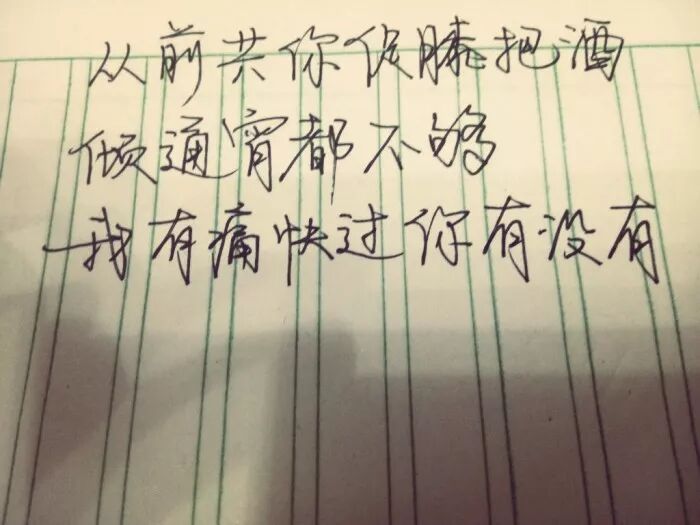 从前共你促膝把酒
倾通宵都不够
我有痛快过你有没有